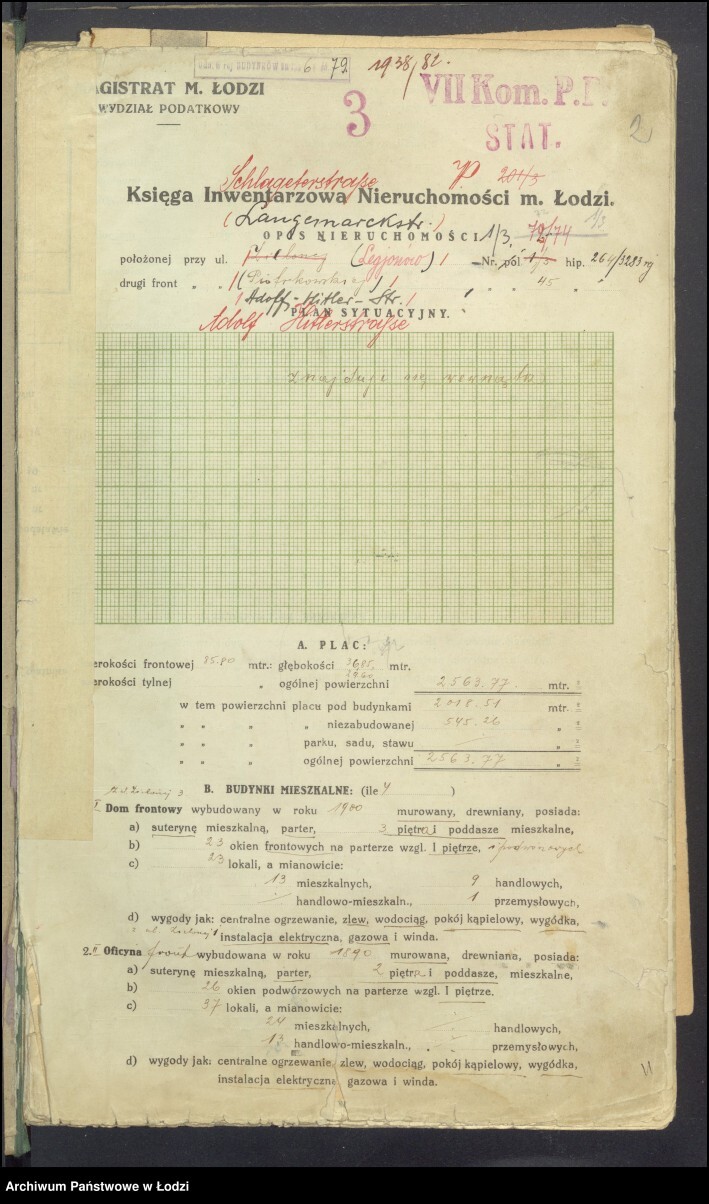 79 1938/82.
AGISTRAT M. ŁODZI
WYDZIAŁ PODATKOWY
3
VII Kom. P.P.
STAT.
2
Schlageterstraße
Księga Inwentarzowa Nieruchomości m. Łodzi.
(Langemarckstr.)
OPIS NIERUCHOMOŚCI 1/3, 72/74 1/3
położonej przy ul. (Legjonów) Nr. pol hip. 264/3283 rj
drugi front „ „ (Piotrkowskiej) 45 „
Adolf-Hitler-Str.
PLAN SYTUACYJNY.
Adolf Hitlerstraße
znajduje się wewnątrz
A. PLAC:
erokości frontowej 85.90 mtr.: głębokości 36,85 mtr.
erokości tylnej „ ogólnej powierzchni 2563.77 mtr. ²
w tem powierzchni placu pod budynkami 2018.51 mtr. ²
„ „ „ „ niezabudowanej 545.26 „ ²
„ „ „ parku, sadu, stawu „ ²
„ „ „ ogólnej powierzchni 2563.77 „ ²
B. BUDYNKI MIESZKALNE: (ile 4 )
I Dom frontowy wybudowany w roku 1900 murowany, drewniany, posiada:
a) suterynę mieszkalną, parter, 3 piętra i poddasze mieszkalne,
b) 23 okien frontowych na parterze wzgl. I piętrze,
c) 23 lokali, a mianowicie:
13 mieszkalnych, 9 handlowych,
handlowo-mieszkaln., 1 przemysłowych,
d) wygody jak: centralne ogrzewanie, zlew, wodociąg, pokój kąpielowy, wygódka,
instalacja elektryczna, gazowa i winda.
2. II Oficyna front wybudowana w roku 1890 murowana, drewniana, posiada:
a) suterynę mieszkalną, parter, 2 piętra i poddasze, mieszkalne,
b) 26 okien podwórzowych na parterze wzgl. I piętrze.
c) 37 lokali, a mianowicie:
24 mieszkalnych, handlowych,
13 handlowo-mieszkaln., przemysłowych,
d) wygody jak: centralne ogrzewanie, zlew, wodociąg, pokój kąpielowy, wygódka,
instalacja elektryczna, gazowa i winda.
Archiwum Państwowe w Łodzi